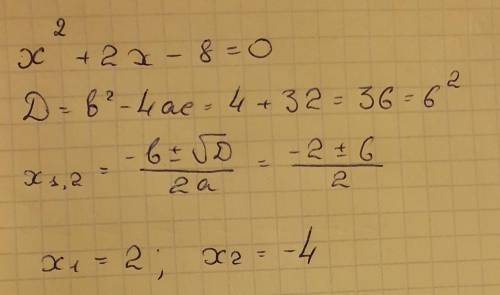 x² + 2x - 8 = 0
D = b² - 4ac = 4 + 32 = 36 = 6²
x₁,₂ = (-b ± √D)/(2a) = (-2 ± 6)/2
x₁ = 2; x₂ = -4